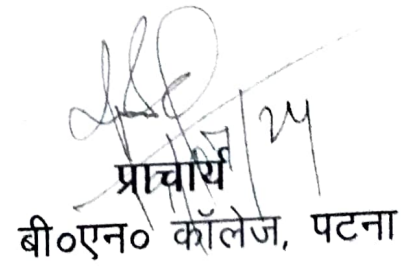 प्राचार्य
बी०एन० कॉलेज, पटना